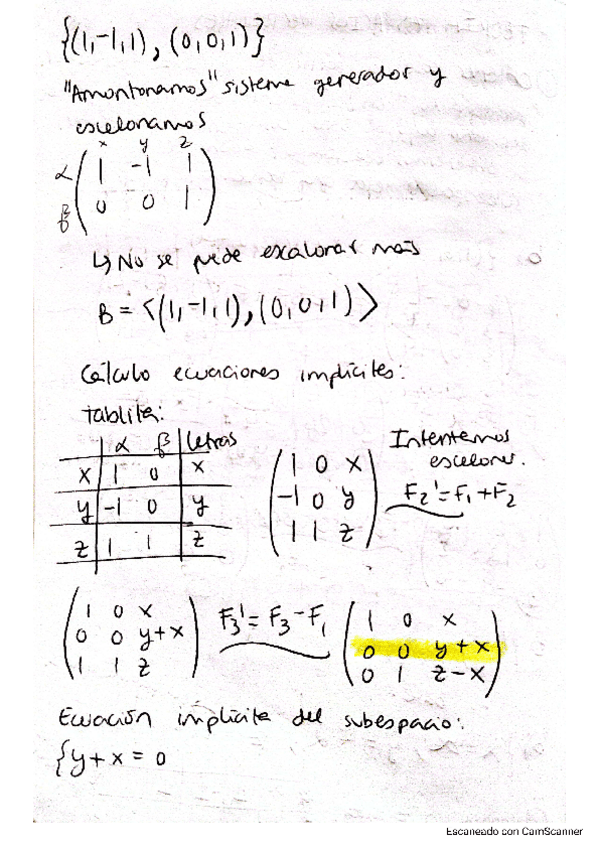 {(1,-1,1), (0,0,1)}
"Amontonamos" sistema generador y
escalonamos
x y z
α ( 1 -1 1 )
β ( 0 0 1 )
↳ No se puede escalonar más
B = <(1,-1,1), (0,0,1)>
Cálculo ecuaciones implícitas:
tablita:
α β letras
x 1 0 x
y -1 0 y
z 1 1 z
( 1 0 x )
( -1 0 y )
( 1 1 z )
Intentemos
escalonar.
F₂' = F₁ + F₂
( 1 0 x )
( 0 0 y+x )
( 1 1 z )
F₃' = F₃ - F₁
( 1 0 x )
( 0 0 y+x )
( 0 1 z-x )
Ecuación implícita del subespacio:
{y+x = 0
Escaneado con CamScanner